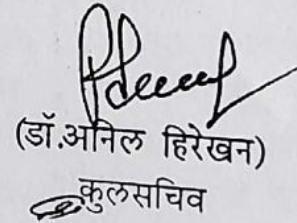 (डॉ.अनिल हिरेखन)
कुलसचिव